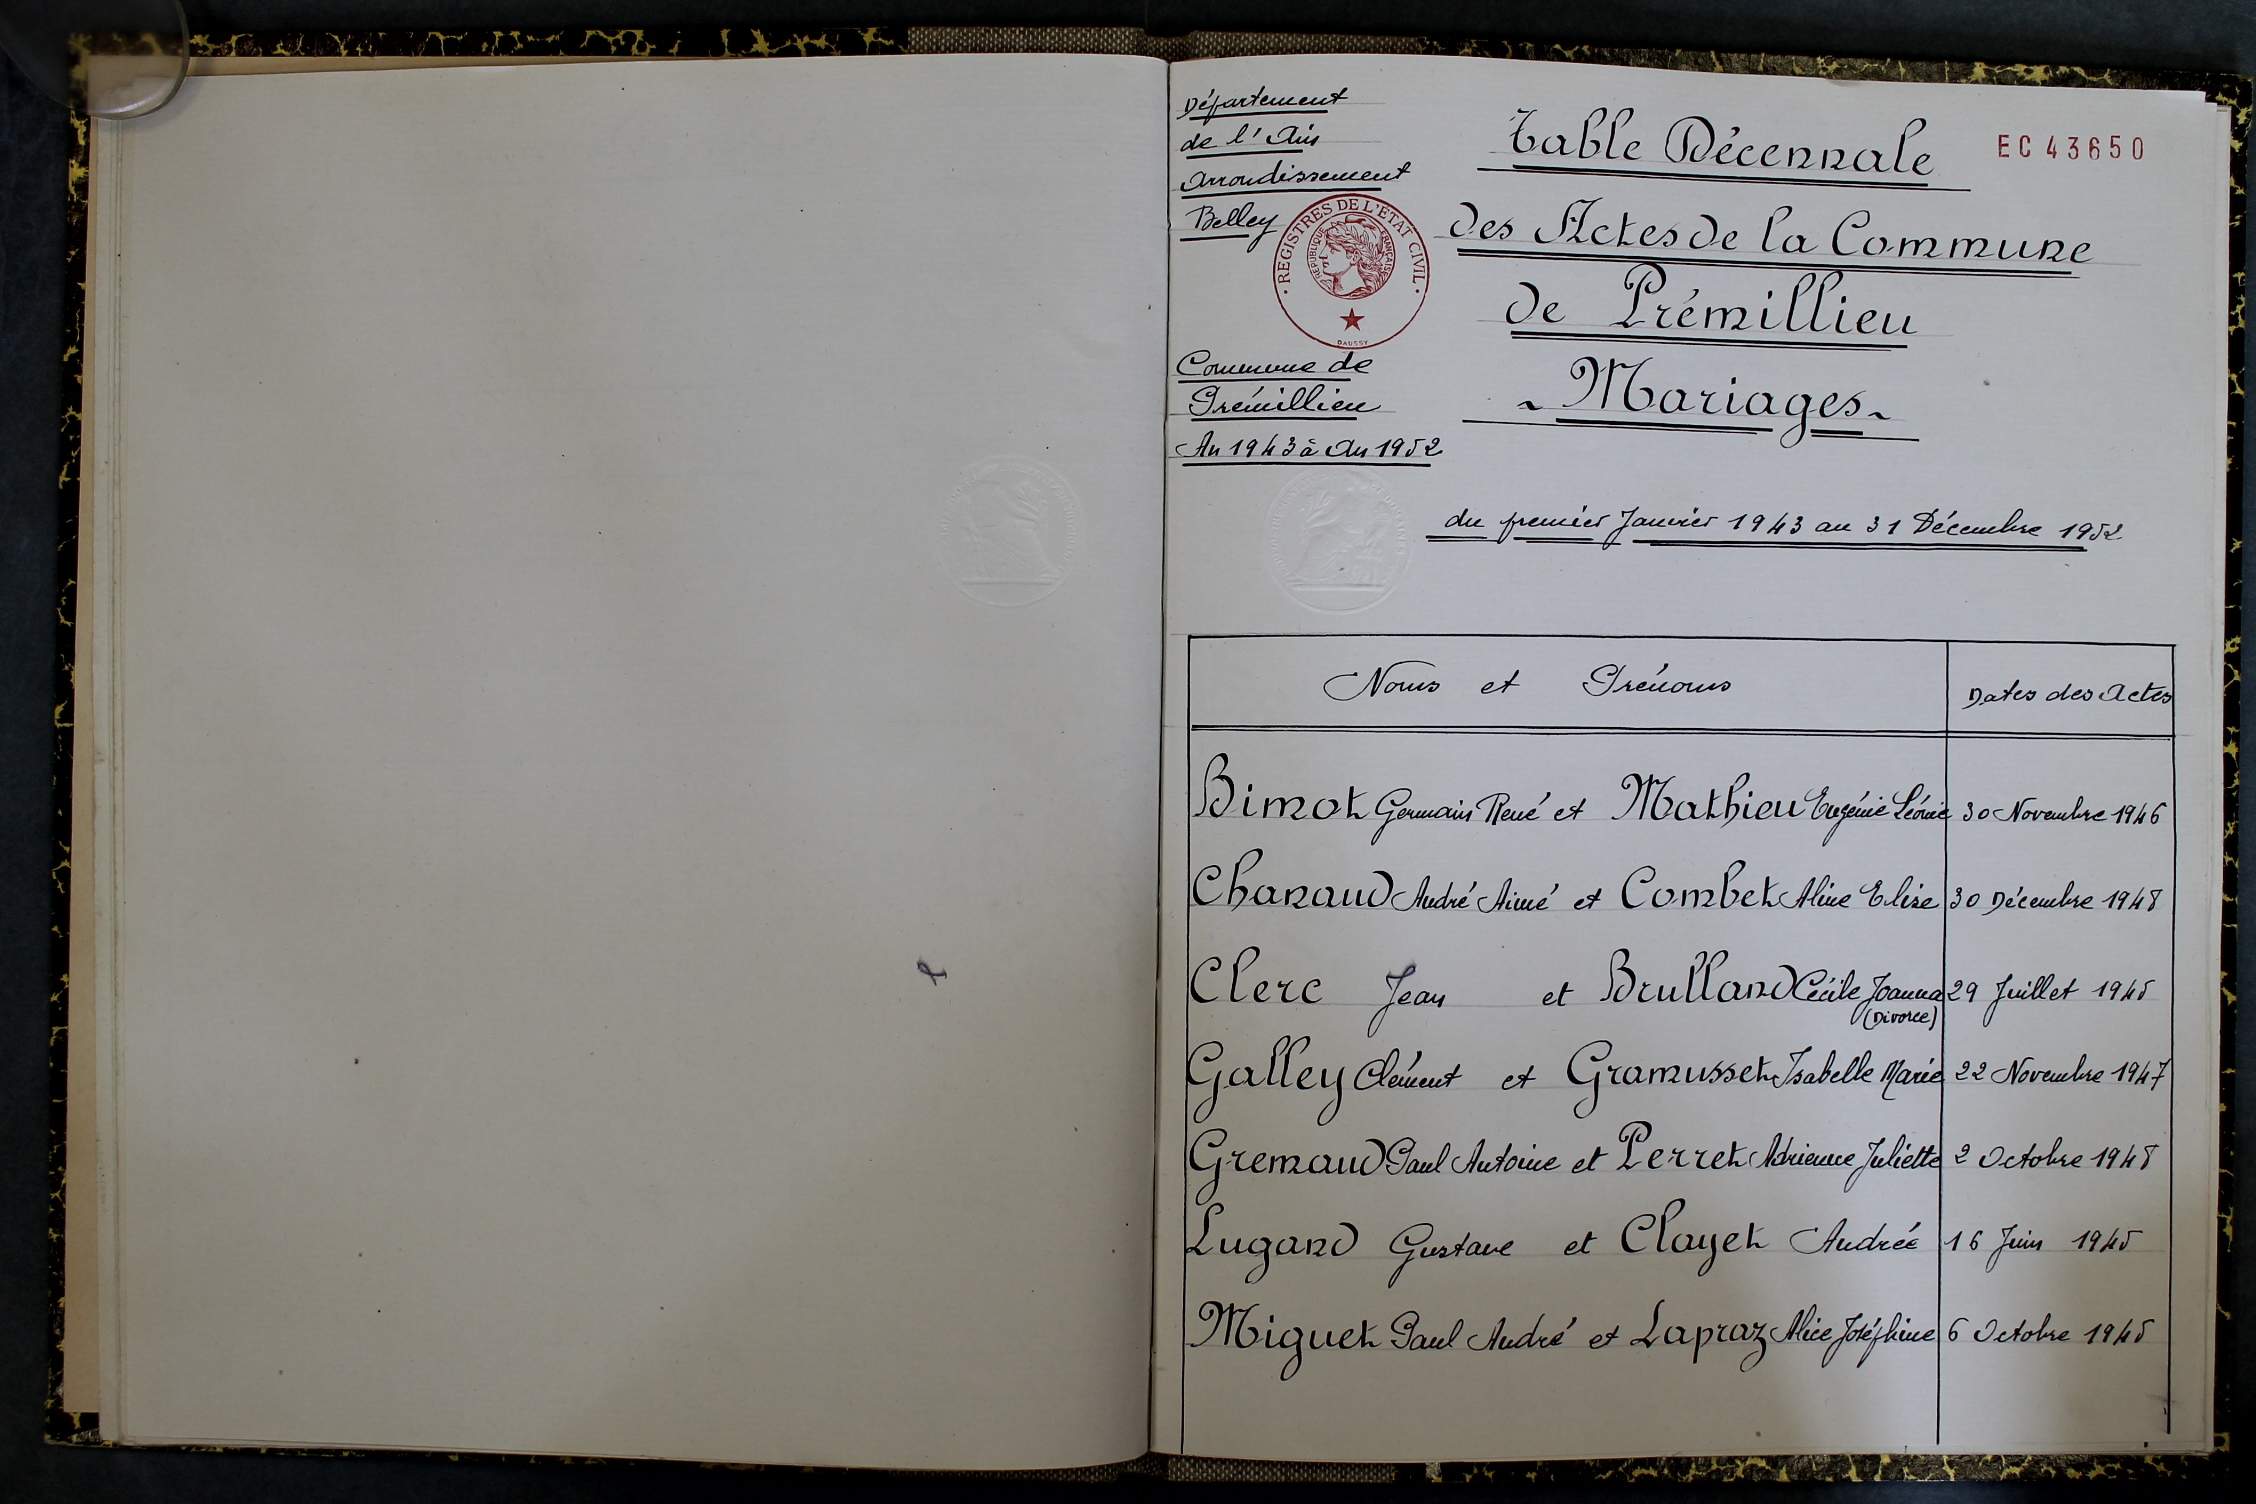 Département
de l'Ain
Arrondissement
Belley
REGISTRES DE L'ÉTAT CIVIL
RÉPUBLIQUE FRANÇAISE
DAUSSY
Commune de
Prémillieu
An 1943 à An 1952
Table Décennale
EC 43650
des Actes de la Commune
de Prémillieu
~ Mariages ~
du premier Janvier 1943 au 31 Décembre 1952
Noms et Prénoms Dates des Actes
Bimot Germain René et Mathieu Eugénie Léonie 30 Novembre 1946
Chanaud André Aimé et Combet Aline Elise 30 Décembre 1948
Clerc Jean et Brulland Cécile Joanna 29 Juillet 1945
(Divorce)
Galley Clément et Gramusset Isabelle Marie 22 Novembre 1947
Gremaud Paul Antoine et Perret Adrienne Juliette 2 Octobre 1948
Lugand Gustave et Clayet Andrée 16 Juin 1945
Miguet Paul André et Lapraz Alice Joséphine 6 Octobre 1945